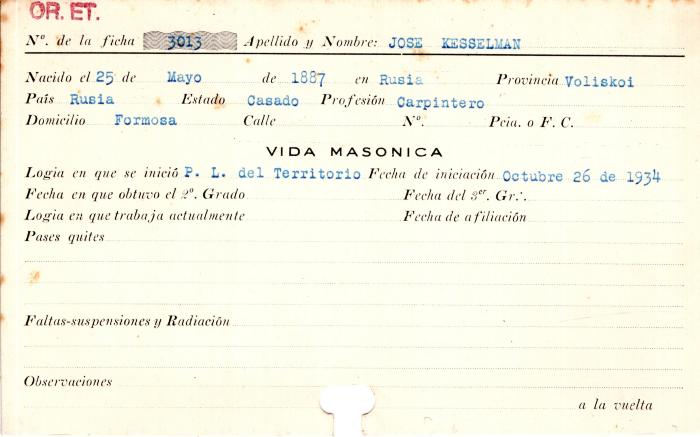 OR. ET.
Nº. de la ficha 3013 Apellido y Nombre: JOSE KESSELMAN
Nacido el 25 de Mayo de 1887 en Rusia Provincia Voliskoi
País Rusia Estado Casado Profesión Carpintero
Domicilio Formosa Calle Nº. Pcia. o F. C.
VIDA MASONICA
Logia en que se inició P. L. del Territorio Fecha de iniciación Octubre 26 de 1934
Fecha en que obtuvo el 2º. Grado Fecha del 3er. Gr∴
Logia en que trabaja actualmente Fecha de afiliación
Pases quites
Faltas-suspensiones y Radiación
Observaciones
a la vuelta